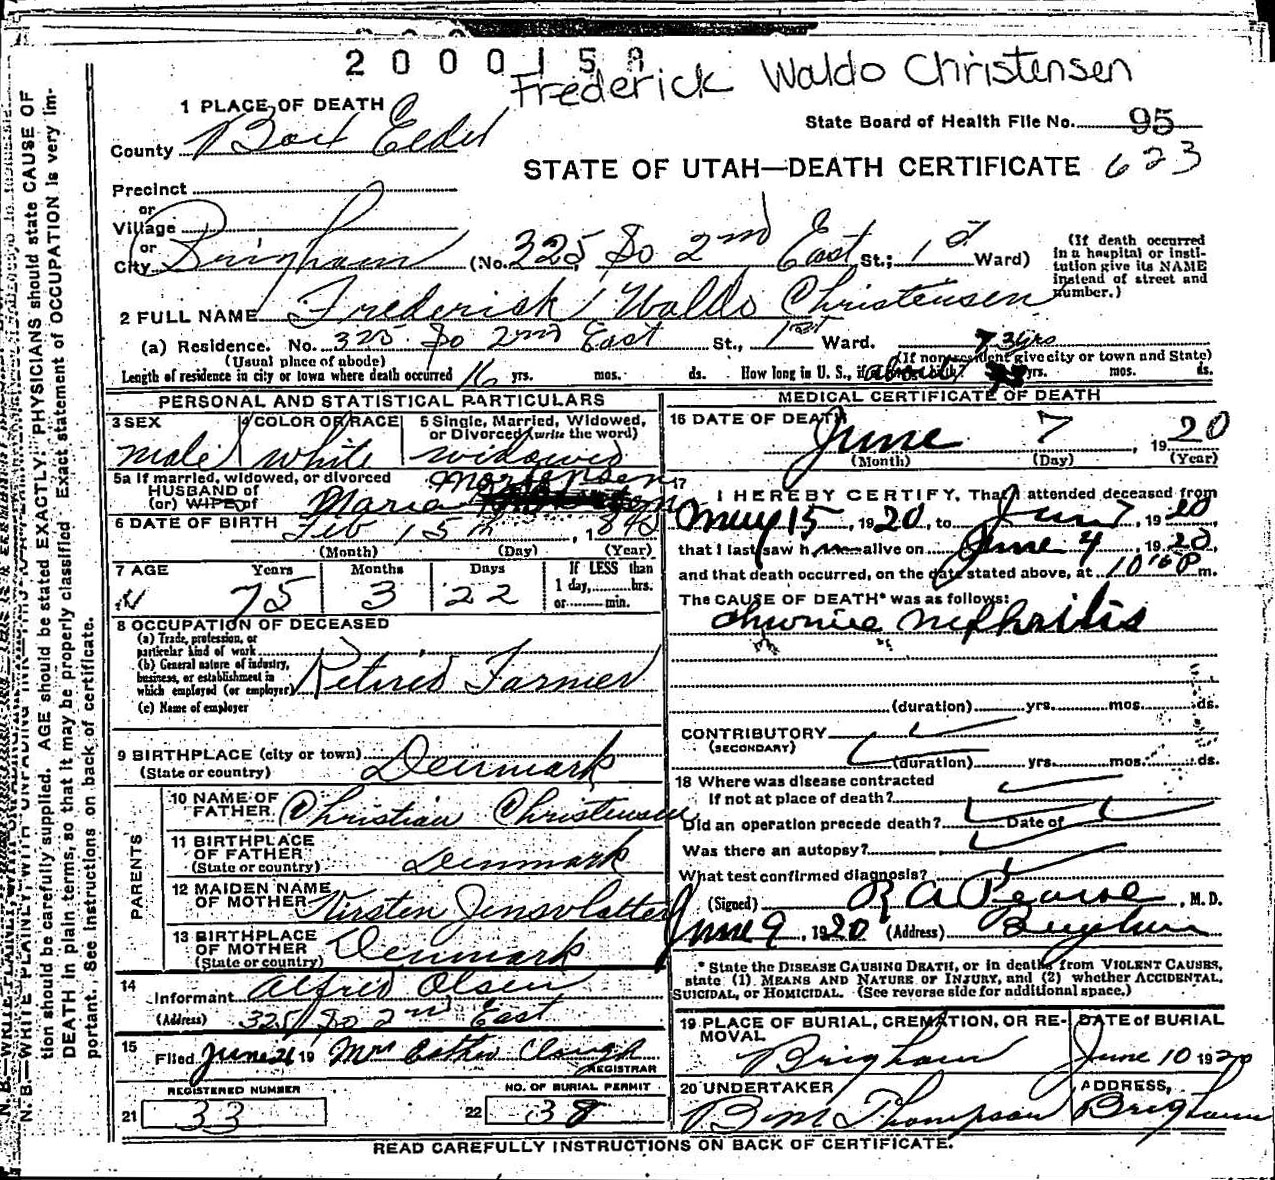 2 0 0 0 1 5 8
Frederick Waldo Christensen
1 PLACE OF DEATH
State Board of Health File No. 95
County Box Elder
STATE OF UTAH—DEATH CERTIFICATE 623
Precinct
or
Village
or
City Brigham (No. 325 So 2nd East St.; 1st Ward)
(If death occurred in a hospital or institution give its NAME instead of street and number.)
2 FULL NAME Frederick Waldo Christensen
(a) Residence. No. 325 So 2nd East St., 1st Ward.
(Usual place of abode) (If nonresident give city or town and State)
Length of residence in city or town where death occurred 16 yrs. mos. ds. How long in U. S., if of foreign birth? yrs. mos. ds.
PERSONAL AND STATISTICAL PARTICULARS
3 SEX male
4 COLOR OR RACE white
5 Single, Married, Widowed, or Divorced (write the word) widowed
5a If married, widowed, or divorced
HUSBAND of
(or) WIFE of Maria Mortensen
6 DATE OF BIRTH Feb 15th, 184
(Month) (Day) (Year)
7 AGE Years 75 Months 3 Days 22 If LESS than 1 day, hrs. or min.
8 OCCUPATION OF DECEASED
(a) Trade, profession, or particular kind of work
(b) General nature of industry, business, or establishment in which employed (or employer) Retired Farmer
(c) Name of employer
9 BIRTHPLACE (city or town)
(State or country) Denmark
PARENTS
10 NAME OF FATHER Christian Christensen
11 BIRTHPLACE OF FATHER (State or country) Denmark
12 MAIDEN NAME OF MOTHER Kirsten
13 BIRTHPLACE OF MOTHER (State or country) Denmark
14 Informant Alfred Olsen
(Address) 325 So 2nd East
15 Filed June 21 19 Mrs Esther Clough
REGISTRAR
REGISTERED NUMBER
21 33
NO. OF BURIAL PERMIT
22 38
MEDICAL CERTIFICATE OF DEATH
16 DATE OF DEATH June 7, 1920
(Month) (Day) (Year)
17 I HEREBY CERTIFY, That I attended deceased from
May 15, 1920, to Jun 7, 1920
that I last saw h alive on June 4, 1920,
and that death occurred, on the date stated above, at 10 P m.
The CAUSE OF DEATH* was as follows:
chronic nephritis
(duration) yrs. mos. ds.
CONTRIBUTORY
(SECONDARY)
(duration) yrs. mos. ds.
18 Where was disease contracted
If not at place of death?
Did an operation precede death? Date of
Was there an autopsy?
What test confirmed diagnosis?
(Signed) R A Pearse, M. D.
June 9, 1920 (Address) Brigham
* State the DISEASE CAUSING DEATH, or in deaths from VIOLENT CAUSES,
state (1) MEANS AND NATURE OF INJURY, and (2) whether ACCIDENTAL,
SUICIDAL, or HOMICIDAL. (See reverse side for additional space.)
19 PLACE OF BURIAL, CREMATION, OR REMOVAL Brigham
DATE of BURIAL June 10 1920
20 UNDERTAKER B M Thompson
ADDRESS, Brigham
READ CAREFULLY INSTRUCTIONS ON BACK OF CERTIFICATE.
tion should be carefully supplied. AGE should be stated EXACTLY. PHYSICIANS should state CAUSE OF
DEATH in plain terms, so that it may be properly classified. Exact statement of OCCUPATION is very im-
portant. See instructions on back of certificate.